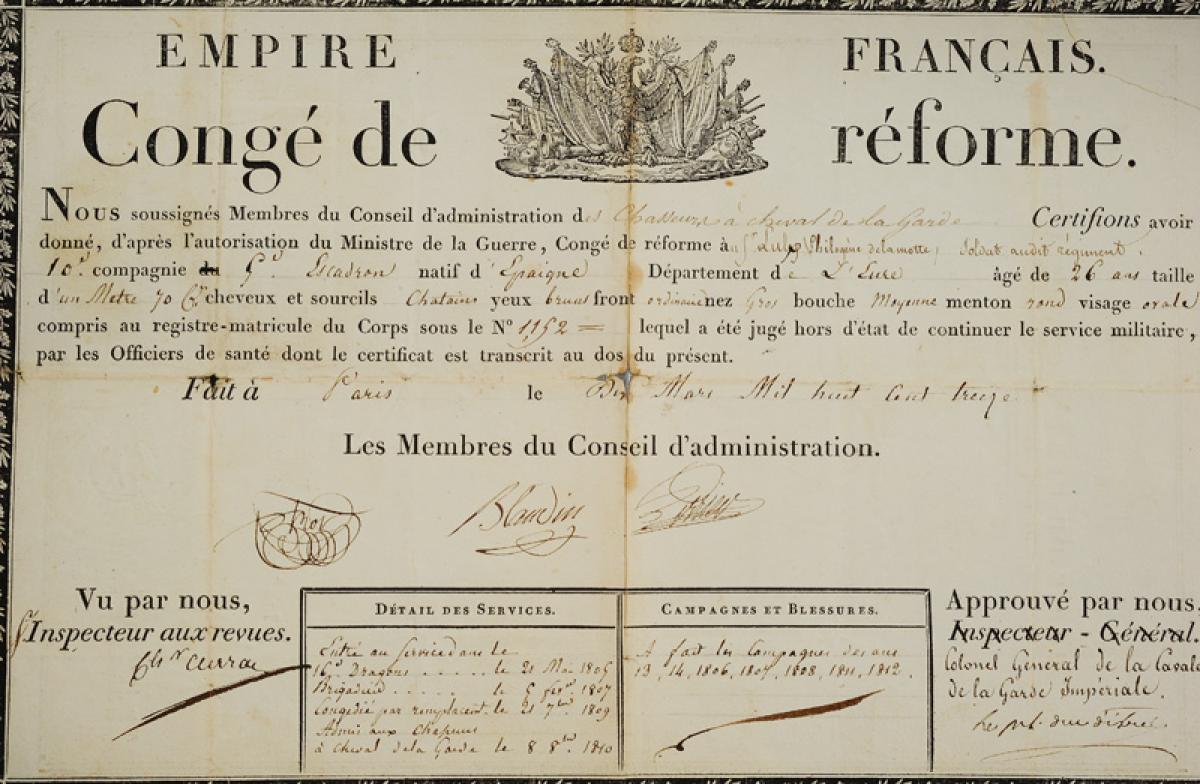 EMPIRE FRANÇAIS.
Congé de réforme.
NOUS soussignés Membres du Conseil d'administration des Chasseurs à cheval de la Garde Certifions avoir
donné, d'après l'autorisation du Ministre de la Guerre, Congé de réforme à Philogène delamotte, Soldat audit régiment.
10e compagnie du 5e Escadron natif d'Epaigne Département de L'Eure âgé de 26 ans taille
d'un Metre 70 Cr cheveux et sourcils Chatains yeux bruns front ordinaire nez Gros bouche Moyenne menton rond visage ovale
compris au registre-matricule du Corps sous le No 1152 = lequel a été jugé hors d'état de continuer le service militaire,
par les Officiers de santé dont le certificat est transcrit au dos du présent.
Fait à Paris le Dix Mars Mil huit Cent treize
Les Membres du Conseil d'administration.
Blandin
Vu par nous,
Inspecteur aux revues.
DÉTAIL DES SERVICES.
Entré au Service dans le
16e Dragons ..... le 21 Mai 1806
Brigadier ..... le 5 fer. 1807
Congédié par remplacent. le 21 7bre 1809
Admis aux Chasseurs
à cheval de la Garde le 8 8bre 1810
CAMPAGNES ET BLESSURES.
A fait les Campagnes des ans
13, 14, 1806, 1807, 1808, 1811, 1812.
Approuvé par nous,
Inspecteur-Général.
Colonel Général de la Cavale
de la Garde Impériale.